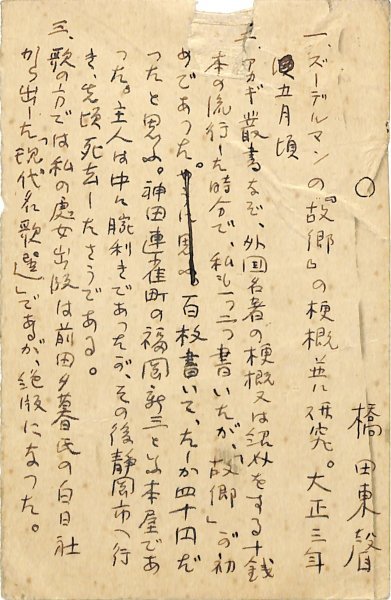 ○
橋田東聲
一、ズーデルマンの『故郷』の梗概並に研究。大正三年
五月頃
二、アカギ叢書など、外国名著の梗概又は紹介をする十銭
本の流行した時分で、私も一つ二つ書いたが、『故郷』が初
めであつた。百枚書いて、たしか四十円だ
つたと思ふ。神田連雀町の福岡新三といふ本屋であ
つた。主人は中々腕利きであつたが、その後静岡市へ行
き、先頃死去したさうである。
三、歌の方では私の處女出版は前田夕暮氏の白日社
から出した『現代名歌選』であるが、絶版になつた。